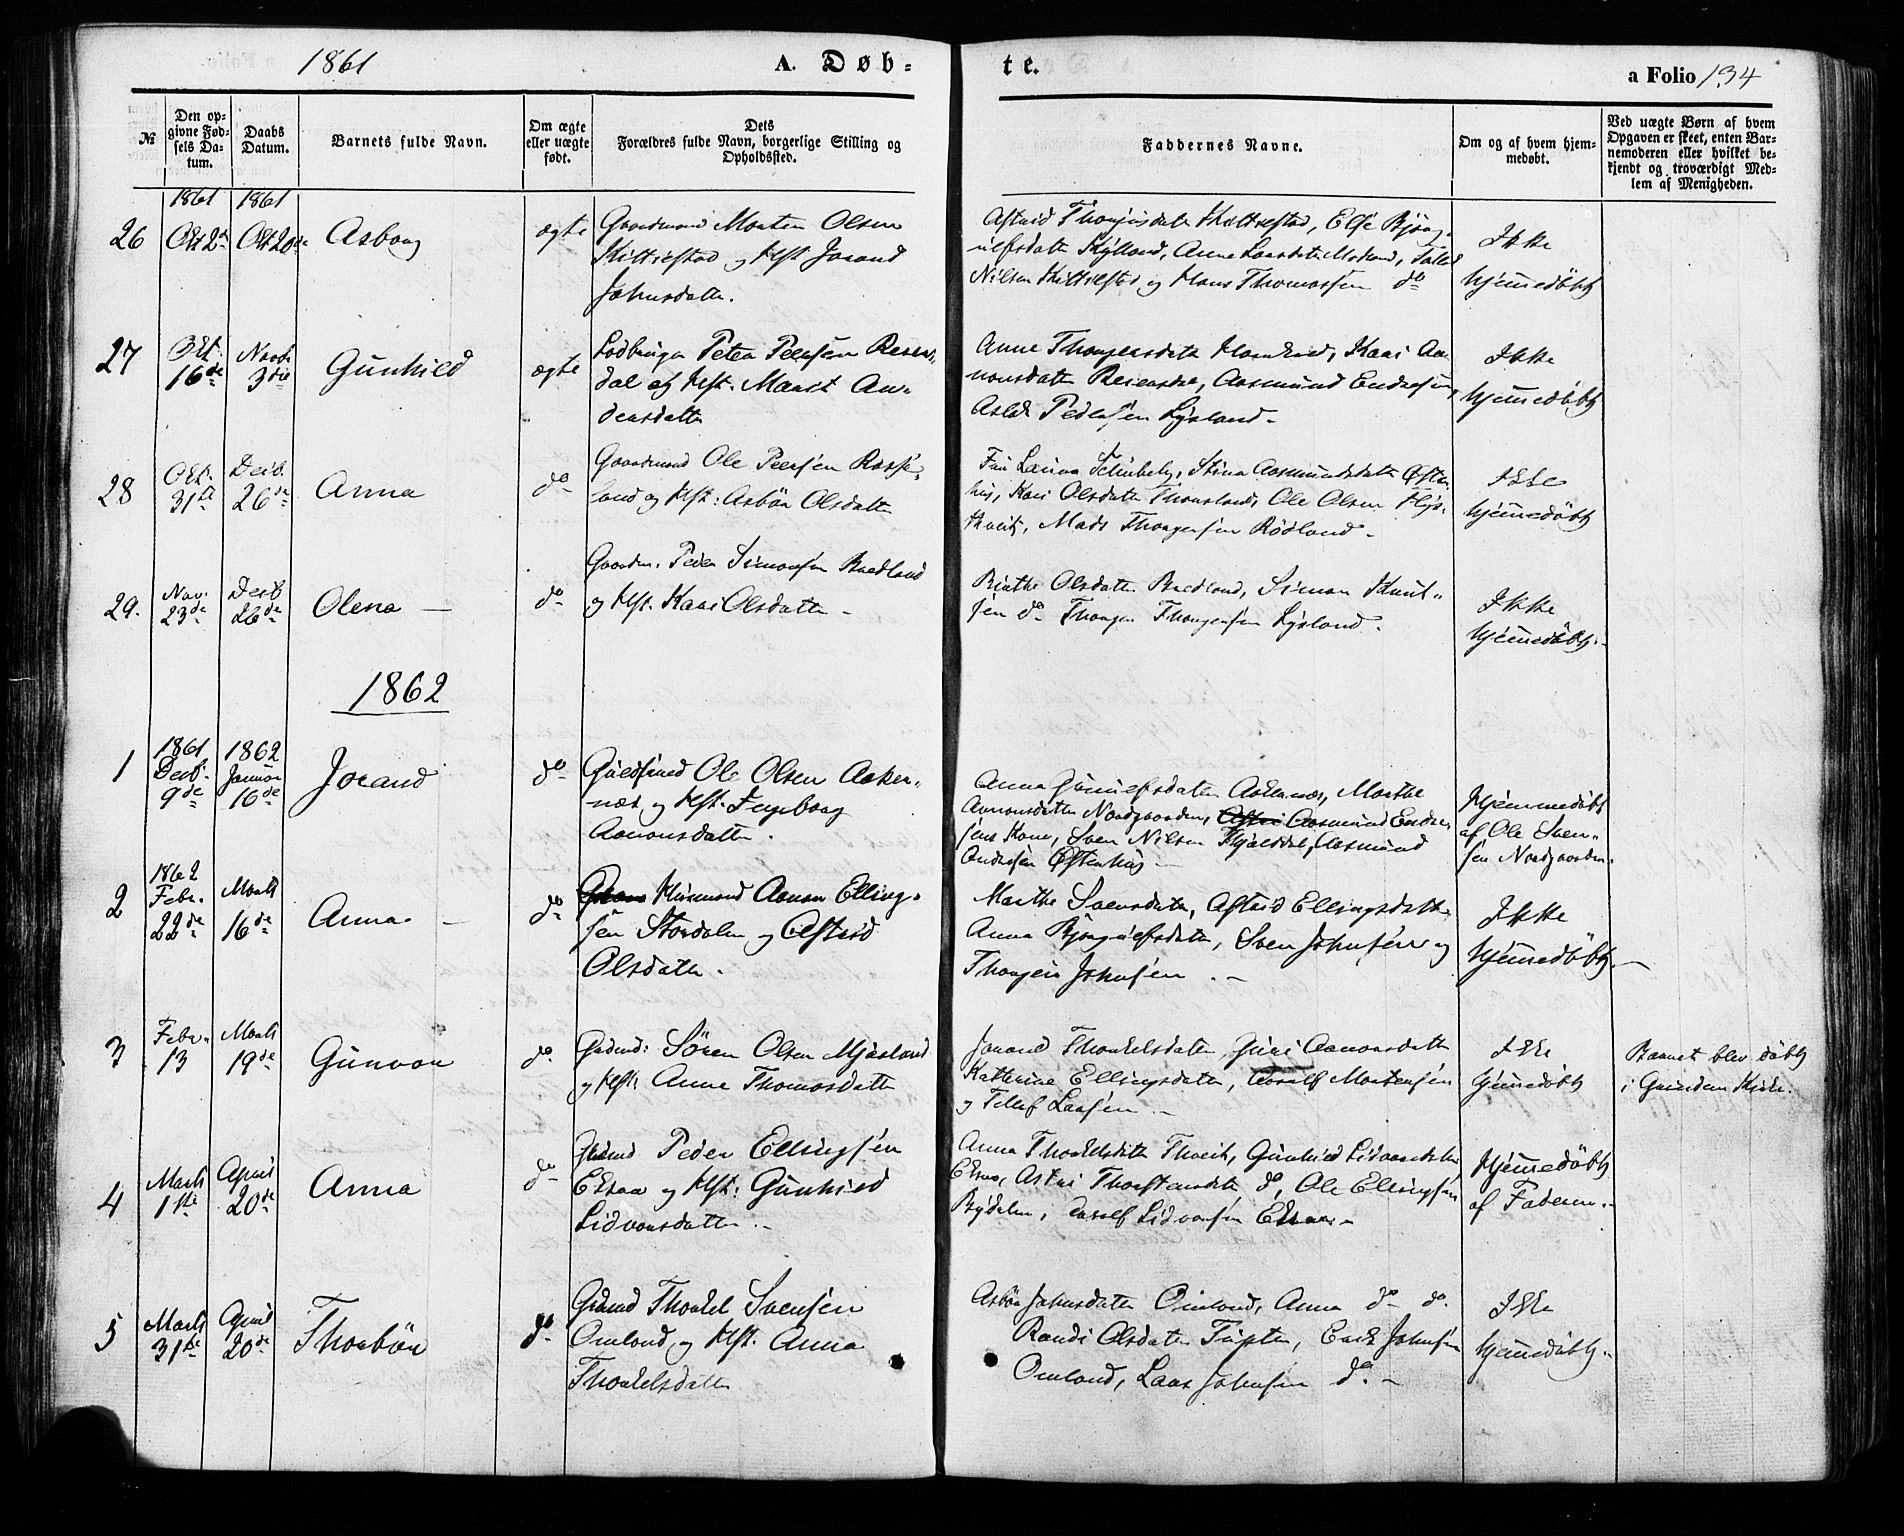 1861
A. Døb-
te.
a Folio 134
№
Den op-
givne Fød-
sels Da-
tum.
Daabs
Datum.
Barnets fulde Navn.
Om ægte
eller uægte
født.
Dets
Forældres fulde Navn, borgerlige Stilling og
Opholdssted.
Faddernes Navne.
Om og af hvem hjem-
medøbt.
Ved uægte Børn af hvem
Opgaven er skeet, enten Bar-
nemoderen eller hvilket be-
kjendt og troværdigt Med-
lem af Menigheden.
1861 1861
26 Oct 2den Oct 20de Asborg ægte Gaardmand Morten Olsen
og Hst. Jorand
Johnsdatter.
Nilsen og Hans Thomassen do
Ikke
hjemmedøbt
27 Okt. 16de Novb. 3die Gunhild ægte
Peder Pedersen
og Hst. Marit An-
dersdatter
Aasmund Endresen,
Aslak Pedersen Lysland.
Ikke
hjemmedøbt
28 Okt. 31te Decb. 26de Anna do
Gaardmand Ole Pedersen Rosse-
land og Hst: Asbør Olsdatter
Stina Aasmundsdatter Østen-
hus, Kari Olsdatter Ole Olsen
Mads Thorgersen Rødland.
Ikke
hjemmedøbt
29. Nov. 23de Decb 26de Olena – do
Gaardm. Peder Simonsen Bredland
og Hst. Kari Olsdatter –
Birthe Olsdatter Bredland, Simon Knut-
sen do Thorger Thorgersen Lysland.
Ikke
hjemmedøbt.
1862
1 1861 Decb. 9de 1862 Januar 16de Jorand do
Ole Olsen Aaken-
næs og Hst. Ingeborg
Aanonsdatter.
Anna Marthe
Aanonsdatter Nordgaarden, Aasmund Endre-
sens Kone, Sven Nilsen Aasmund
Andersen Østenhus –
Hjemmedøbt
af Ole Sven-
sen Nordgaarden.
2 1862 Febr. 22de Marts 16de Anna – do
Husmand Aanon Elling-
sen Stordalen og Astrid
Olsdatter.
Marthe Svensdatter, Astrid Ellingsdatter
Anna Bjørgulfsdatter, Sven Johnsen og
Johnsen. –
Ikke
hjemmedøbt. –
3 Febr. 13 Marts 19de Gunvor do.
Gdmd: Søren Olsen Mjaaland
og Hst: Anne Thomasdatter
Jorand Thorkelsdatter, Guri Aanonsdatter
Kathrine Ellingsdatter, Aasulf Mortensen
og Tellef Larsen. –
Ikke
hjemmedøbt
Barnet blev døbt
i Kirke.
4 Marts 1ste April 20de Anna do
Gdmd Peder Ellingsen
Eksaa og Hst: Gunhild
Lidvorsdatter. –
Anna Thorkelsdatter Tveit, Gunhild Lidvorsdatter
Eksaa, Astri Thorstensdatter do, Ole Ellingsen
Bydalen, Aasulf Lidvorsen Eksaa. –
Hjemmedøbt
af Faderen. –
5 Marts 31te April 20de Thorbør do.
Gdmd Thorkel Svensen
Omland, og Hst: Anna
Thorkelsdatter
Asbør Johnsdatter Omland, Anna do do.
Randi Olsdatter Erik Johnsen
Omland, Lars Johnsen do. –
Ikke
hjemmedøbt.